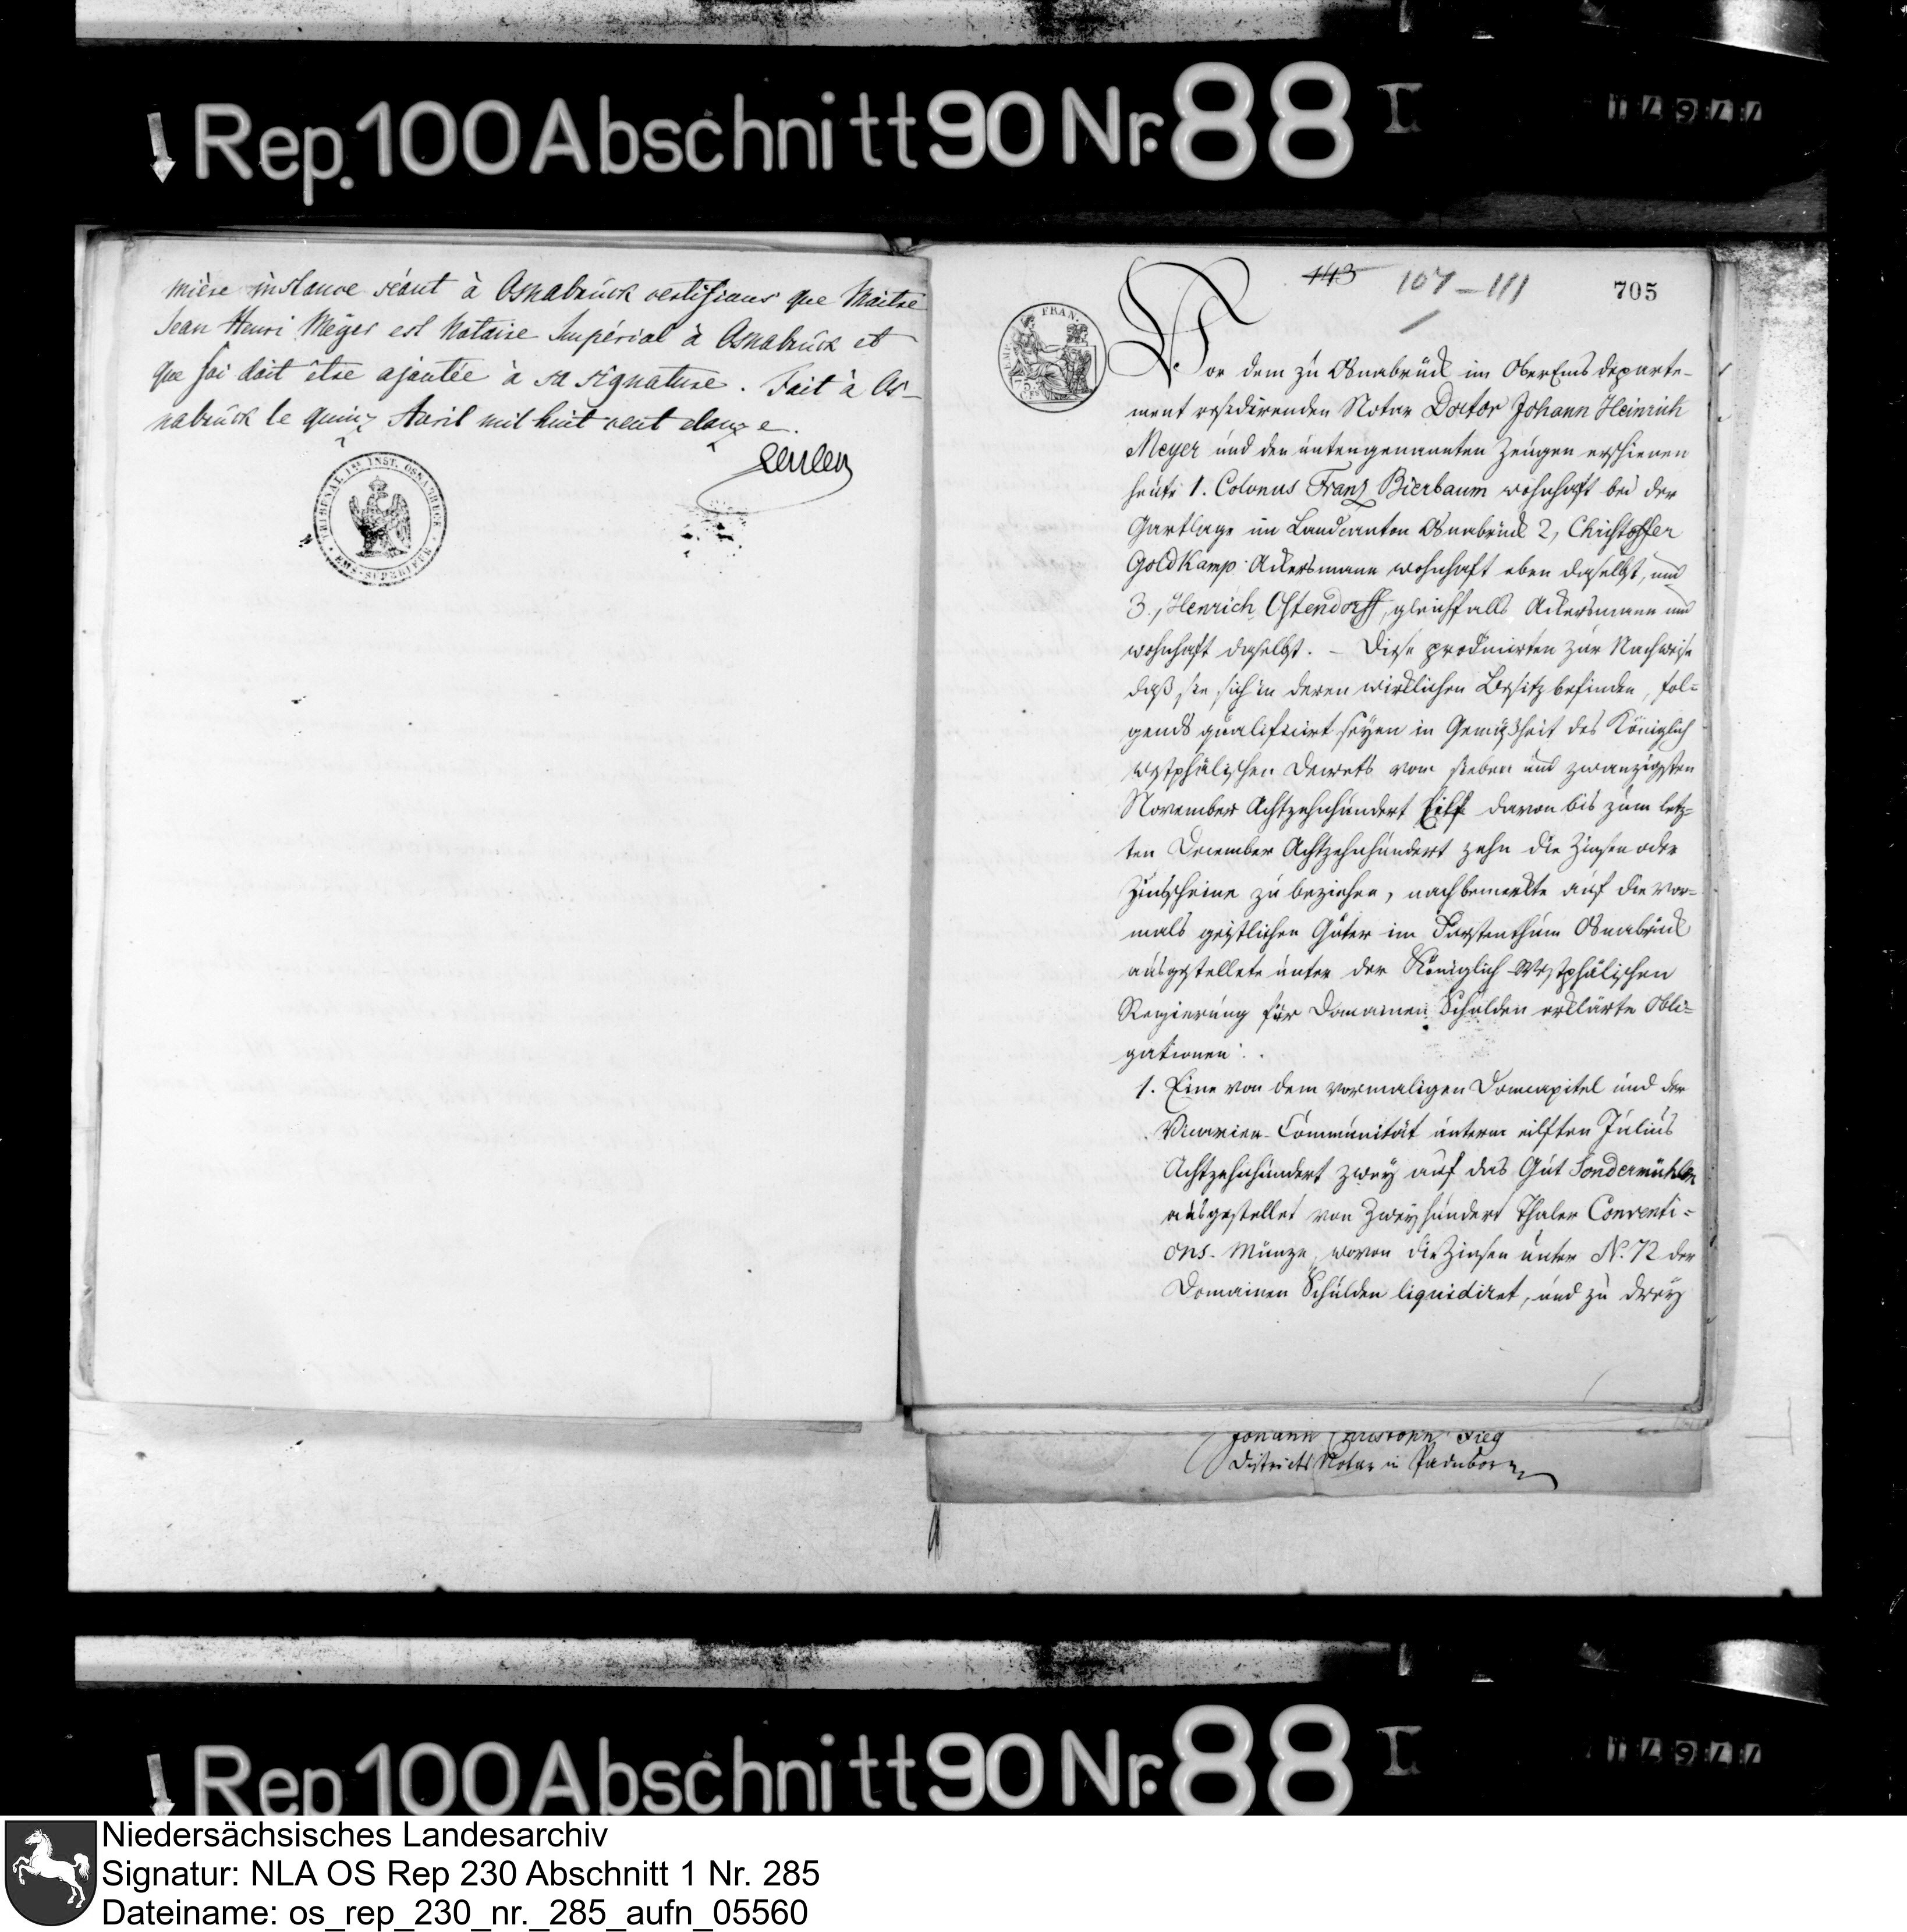 Rep. 100 Abschnitt 90 Nr. 88 I
mière instance séant à Osnabrück certifions que Maitre
Jean Henri Meyer est Notaire Impérial à Osnabrück et
que foi doit être ajoutée à sa signature. Fait à Os-
nabrück le quinz Avril mil huit cent douze.
TRIBUNAL 1RE INST. OSNABRUCK
EMS-SUPERIEUR
143 107-111
705
FRAN.
Vor dem zu Osnabrück im OberEms Departe-
ment residirenden Notar Doctor Johann Heinrich
Meyer und den untengenannten Zeugen erschienen
heute 1. Colonus Franz Bierbaum wohnhaft bei der
Gartlage im Landcanton Osnabrück 2, Christoffer
Goldkamp Ackersmann wohnhaft eben daselbst, und
3., Henrich Ostendorff, gleichfalls Ackersmann und
wohnhaft daselbst. – Diese producirten zur Nachweise
daß sie sich in deren wirklichen Besitz befinden, fol=
gends qualificirt seyen in Gemäßheit des Königlich
westphälischen Decrets vom sieben und zwanzigsten
November Achtzehnhundert Eilf davon bis zum letz=
ten December Achtzehnhundert zehn die Zinsen oder
Zinsscheine zu beziehen, nachbemerkte auf die vor=
mals geistlichen Güter im Fürstenthum Osnabrück
ausgestellete unter der Königlich-Westphälischen
Regierung für Domainen Schulden erklärte Obli=
gationen:
1. Eine von dem vormaligen Domcapitel und der
Vicarien-Communität unterm eilften Julius
Achtzehnhundert zwey auf das Gut Sondermühlen
ausgestellet von Zweyhundert Thaler Conventi=
ons-Münze, wovon die Zinsen unter N. 72 der
Domainen Schulden liquidiret, und zu drey
Johann Christoph Fieg
Districts Notar in Paderborn
Rep 100 Abschnitt 90 Nr. 88 I
Niedersächsisches Landesarchiv
Signatur: NLA OS Rep 230 Abschnitt 1 Nr. 285
Dateiname: os_rep_230_nr._285_aufn_05560